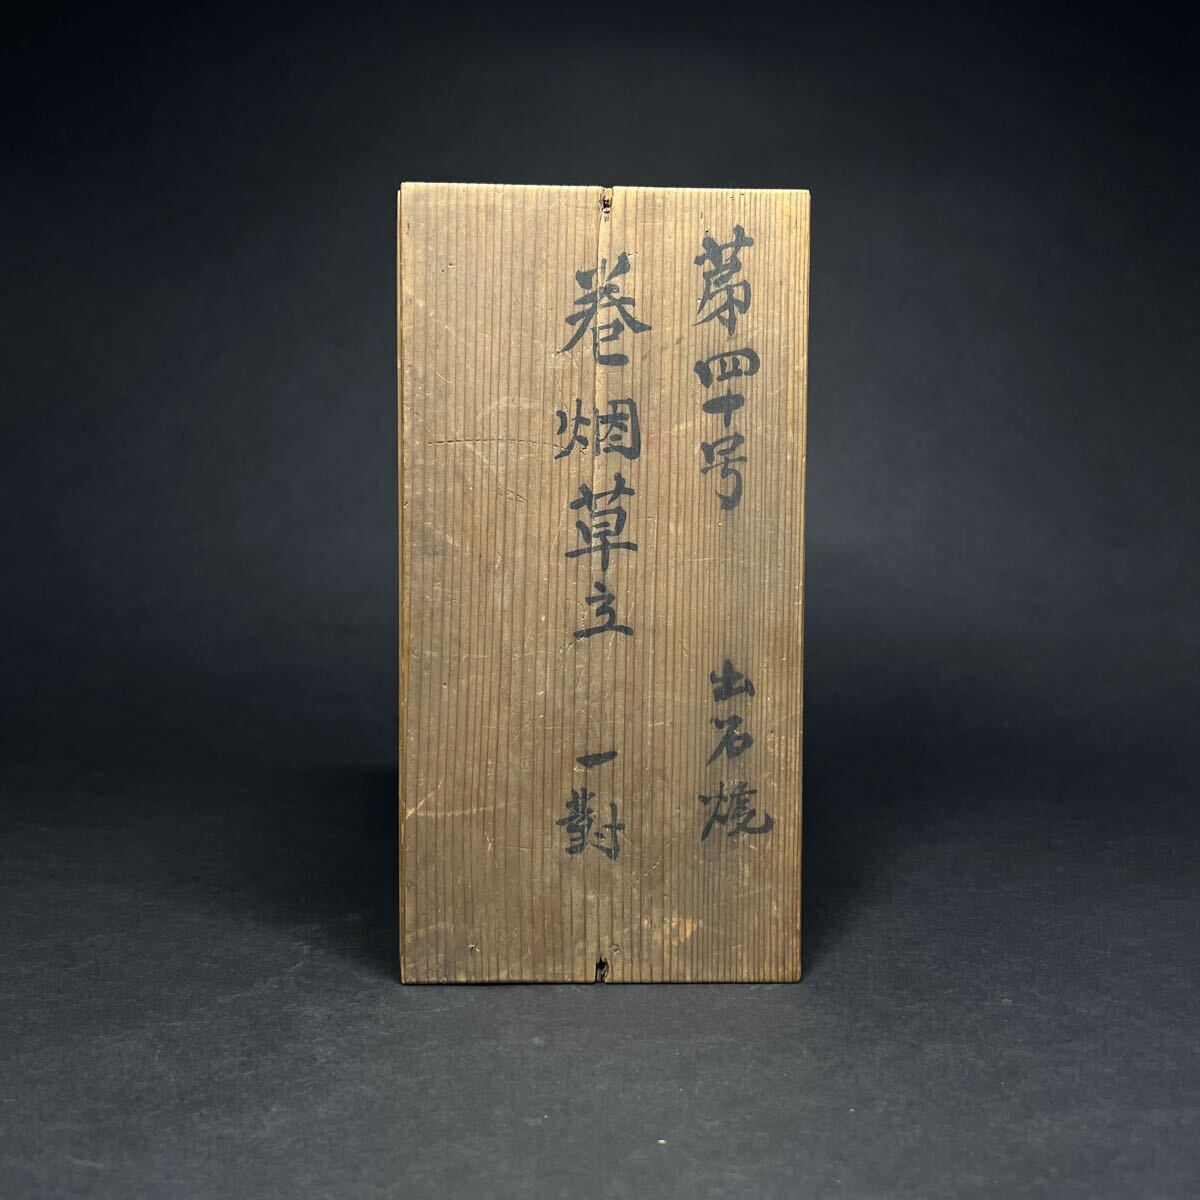 第四十号 出石燒
卷烟草立 一對